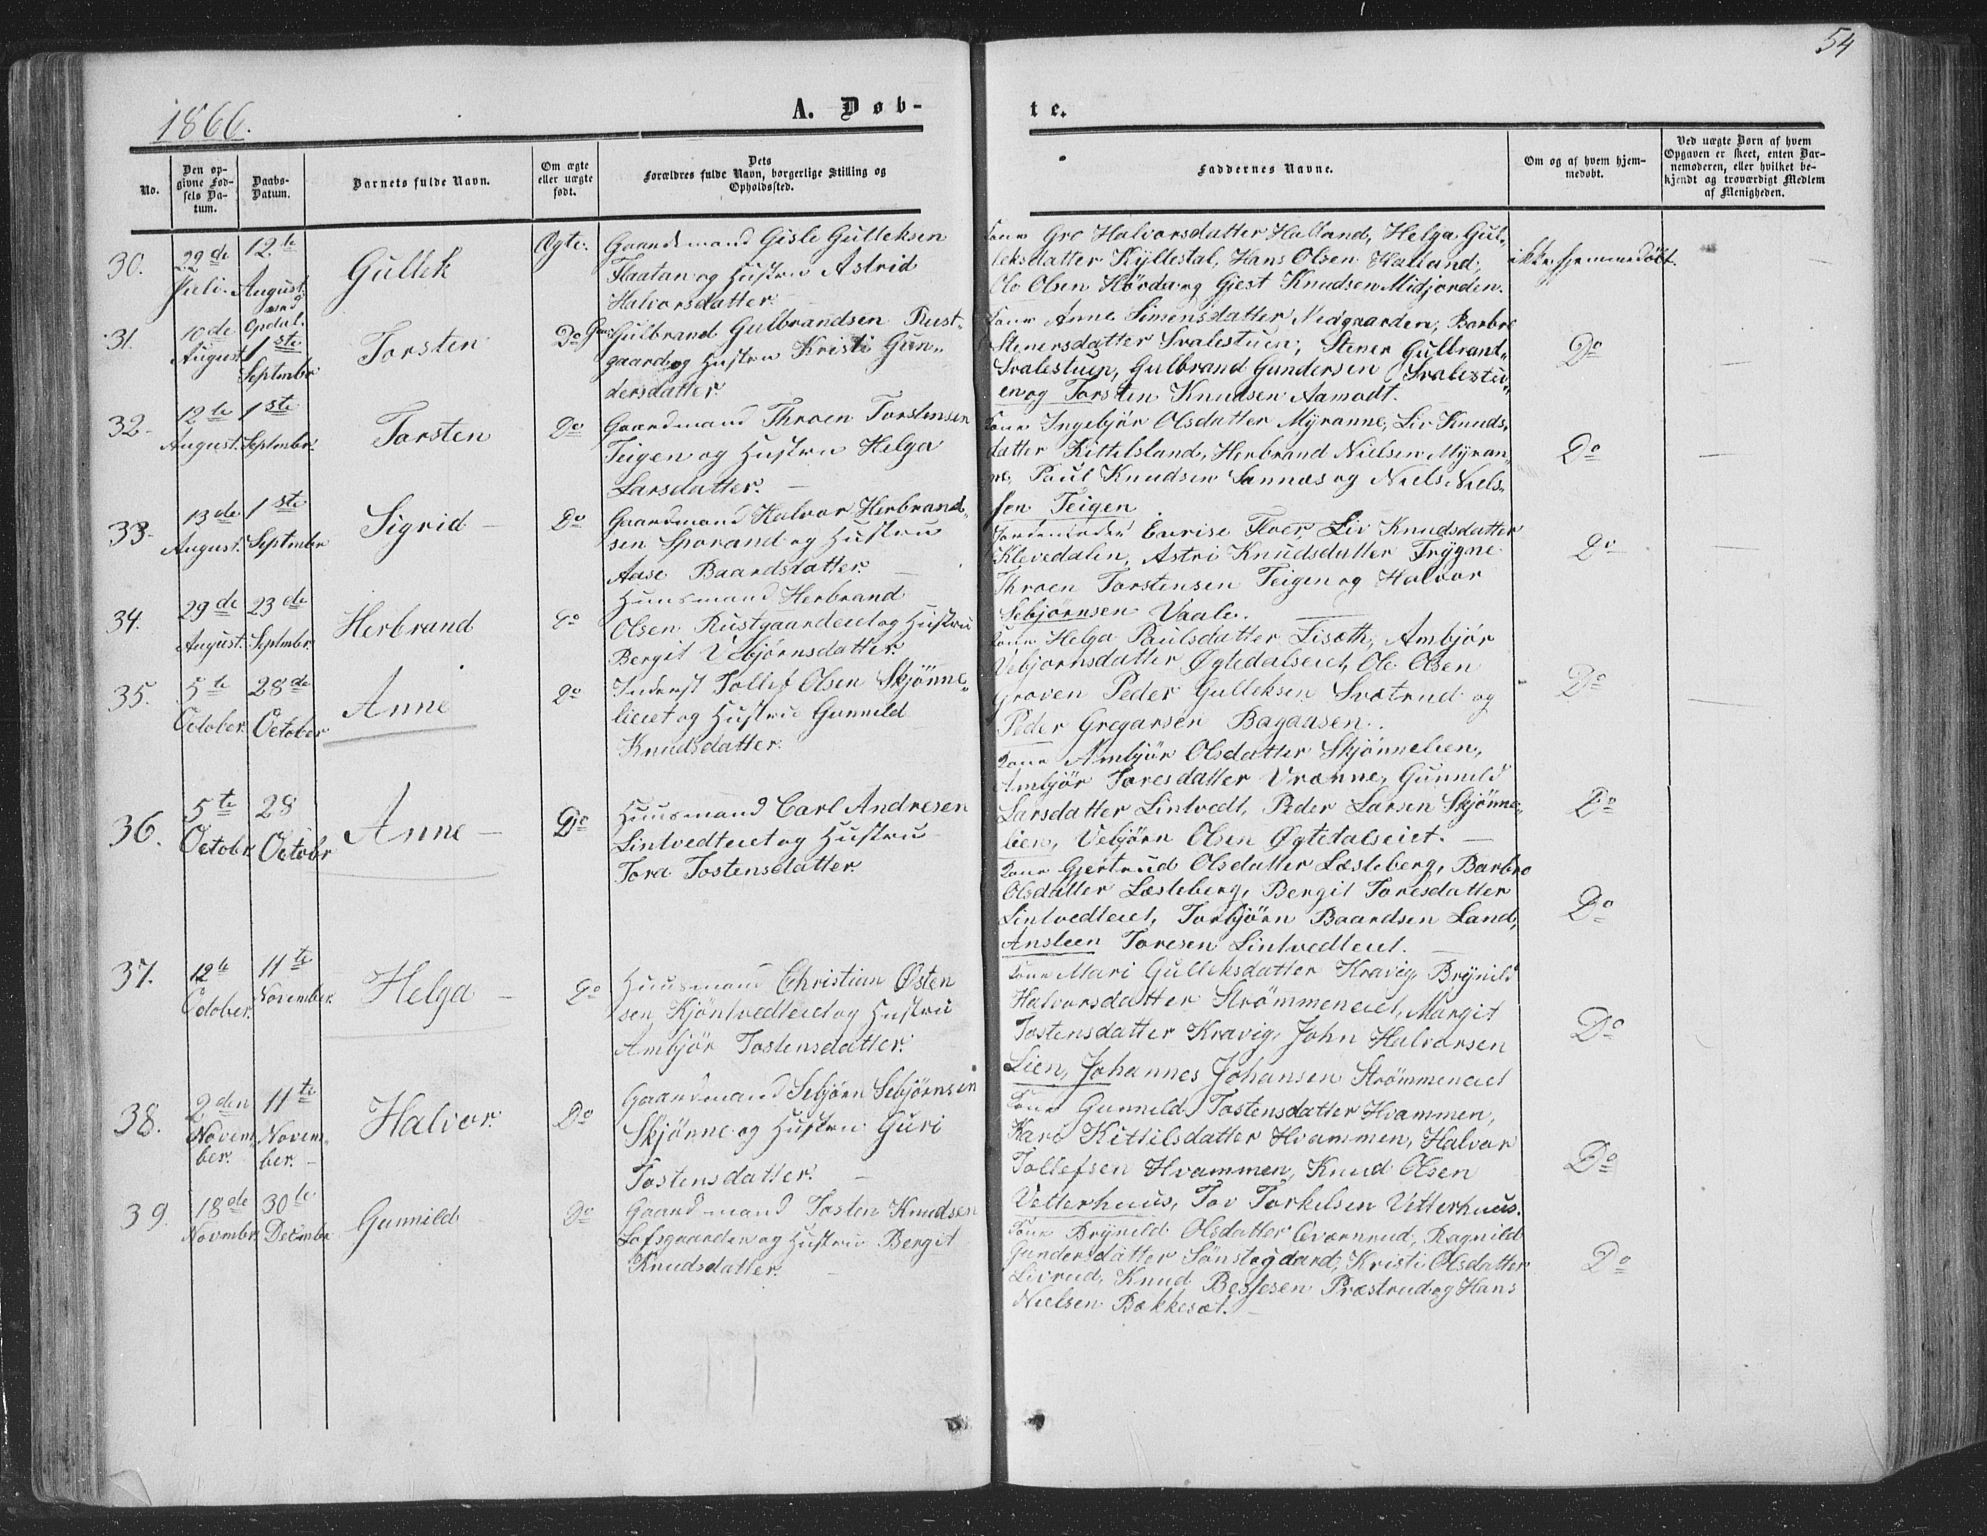 54
1866.
A. Døb-
te.
No.
Den opgivne Fødsels Datum.
Daabs-Datum.
Barnets fulde Navn.
Om ægte eller uægte født.
Dets Forældres fulde Navn, borgerlige Stilling og Opholdssted.
Faddernes Navne.
Om og af hvem hjemmedøbt.
Ved uægte Børn af hvem Opgaven er skeet, enten Barnemoderen, eller hvilket bekjendt og troværdigt Medlem af Menigheden.
30.
29de Juli.
12te August
Opdal.
Gullek
Ægte.
Gaardmand Gisle Gulleksen
Flaatan og Hustru Astrid
Halvorsdatter.
Kone Gro Halvorsdatter Halland, Helga Gul-
leksdatter Kyllestal, Hans Olsen Halland,
Ole Olsen Hørda og Gjest Knudsen Midjorden.
ikke hjemmedøbt.
31.
10de August
1ste Septmber
Torsten
Do
Gulbrand Gulbrandsen Rust-
gaard og Hustru Kristi Gun-
dersdatter.
Kone Anne Simensdatter Nedgaarden, Barbro
Stenersdatter Svalestuen, Stener Gulbrant-
Svalestuen, Gulbrand Gundersen Svalestu-
en og Torsten Knudsen Aamodt.
Do
32.
12te August.
1ste Septmber.
Torsten
Do
Gaardmand Throen Torstensen
Teigen og Hustru Helga
Larsdatter.
Kone Ingebjør Olsdatter Myranne, Liv Knuds-
datter Kittelsland, Herbrand Nielsen Myran-
ne, Paul Knudsen Sannæs og Niels Niels-
sen Teigen
Do
33.
13de August.
1ste Septmber
Sigrid
Do
Gaardmand Halvor Herbrand-
sen Sporand og Hustru
Aase Baardsdatter.
Floer, Liv Knudsdatter
Klevedalen, Astri Knudsdatter Frygne
Throen Torstensen Teigen og Halvor
Sebjørnsen Vaale.
Do
34.
29de August.
23de Septmber.
Herbrand
Do
Huusmand Herbrand
Olsen Rustgaardeiet og Hustru
Bergit Vebjørnsdatter.
Kone Helga Paulsdatter Liseth, Ambjør
Vebjornsdatter Øgtedalseiet, Ole Olsen
Groven Peder Gulleksen Svatrud og
Peder Gregarsen Bagaasen.
Do
35.
5te October.
28de October
Anne
Do
Inderst Tollef Olsen Skjønne-
lieiet og Hustru Gunnild
Knudsdatter.
Kone Ambjør Olsdatter Skjønnelien,
Ambjør Toresdatter Vranne, Gunnild
Larsdatter Lintvedt, Peder Larsen Skjønne-
lien, Vebjørn Olsen Øgtedalseiet.
Do
36.
5te Octobr.
28 Octobr
Anne
Do
Huusmand Carl Andresen
Lintvedteiet og Hustru
Tora Tostensdatter.
Kone Gjertrud Olsdatter Læsteberg, Barbro
Olsdatter Læsteberg, Bergit Toresdatter
Lintvedteiet, Torbjørn Baardsen Land,
Ansteen Toresen Lintvedteiet.
Do
37.
12te October.
11te November.
Helga
Do
Huusmand Christian Østen
sen Kjöntvedteiet og Hustru
Ambjør Tostensdatter.
Kone Mari Gulleksdatter Kravig, Brynild
Halvorsdatter Strømmeneiet, Margit
Tostensdatter Kravig, John Halvorsen
Lien, Johannes Johansen Strømmeneiet
Do
38.
2den November.
11te November.
Halvor.
Do
Gaardmand Sebjørn Sebjørnsen
Skjønne og Hustru Guri
Tostensdatter.
Kone Gunnild Tostensdatter Hvammen,
Kari Kittilsdatter Hvammen, Halvor
Tollefsen Hvammen, Knud Olsen
Vetterhuus, Tov Torkelsen Vetterhuus.
Do
39.
18de Novmber.
30te Decmber
Gunnild
Do
Gaardmand Tosten Knudsen
Lofsgaarden og Hustru Bergit
Knudsdatter.
Kone Brynild Olsdatter Qværnrud, Ragnild
Gundersdatter Sønstegaard, Kristi Olsdatter
Livrud, Knud Bessesen Præstrud og Hans
Nielsen Bakkesæt.
Do